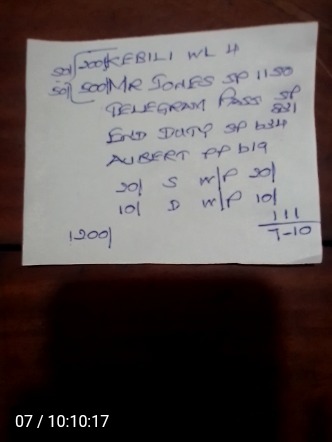 50/ 200/ KEBILI WL 4
50/ 500/ MR JONES SP 1150
TELEGRAM PASS SP 831
END DUTY SP b34
AUBERT PP b19
20/ S W/P 20/
10/ D W/P 10/
111
1200/ 7-10
07 / 10:10:17